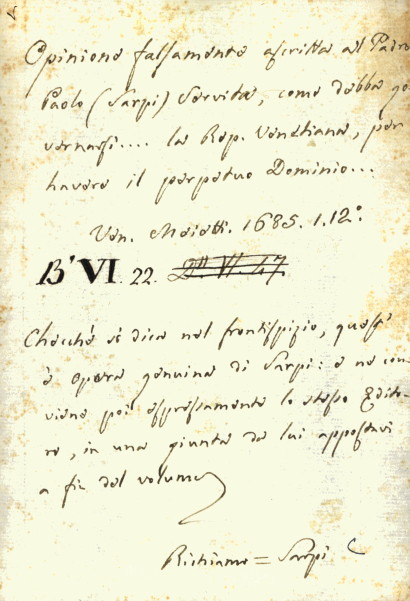 Opinione falsamente ascritta al Padre
Paolo (Sarpi) Servita, come debba go
vernarsi.... la Rep. Venetiana, per
havere il perpetuo Dominio...
Ven. Meietti. 1685. 1. 12°.
B' VI. 22.
Checché si dica nel frontispizio, quest'
è opera genuina di Sarpi: e ne con
viene poi espressamente lo stesso Edito-
re, in una giunta da lui appostavi
a fin del volume
Richiamo = Sarpi